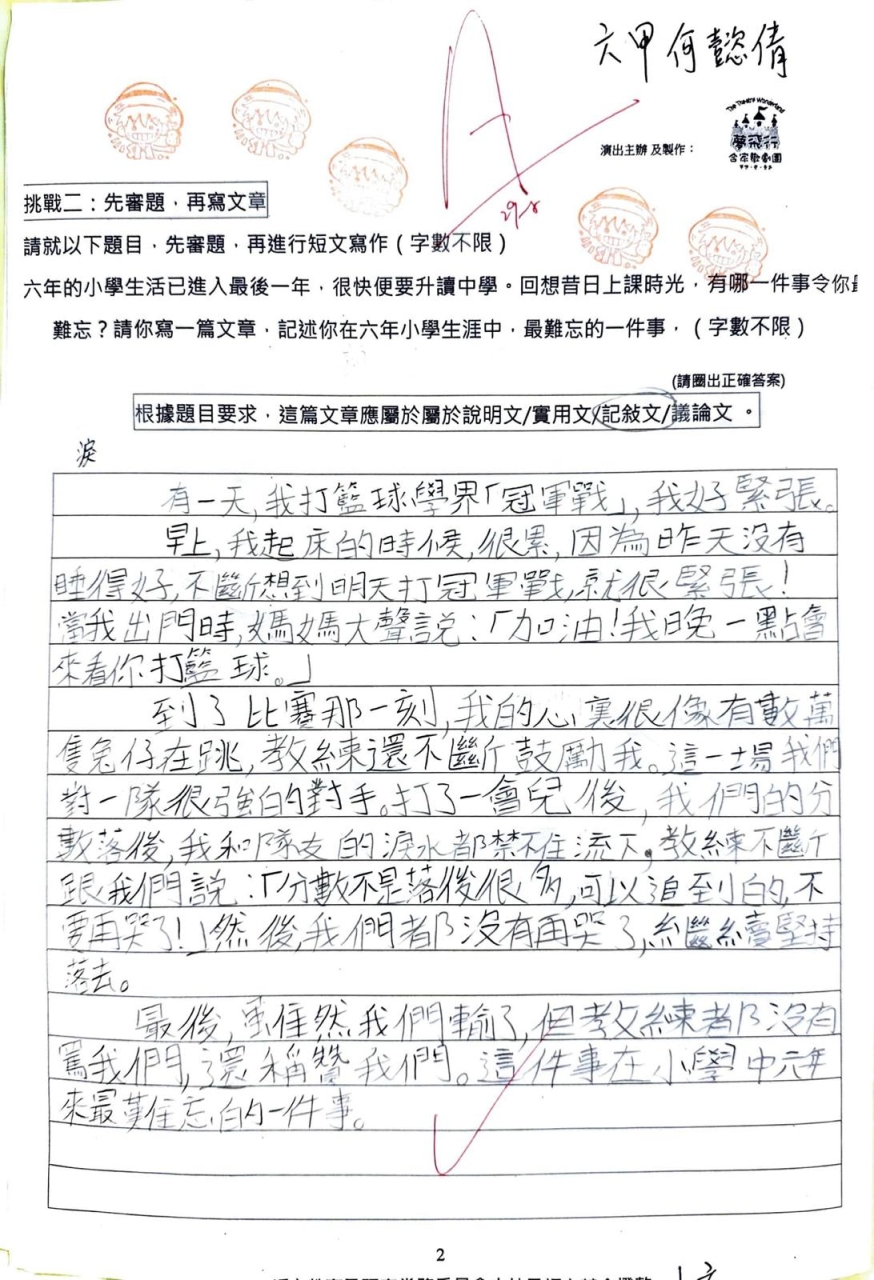 六甲 何懿倩
A
29-8
The Theatre Wonderland
夢飛行
合家歡劇團
演出主辦 及製作：
挑戰二：先審題，再寫文章
請就以下題目，先審題，再進行短文寫作（字數不限）
六年的小學生活已進入最後一年，很快便要升讀中學。回想昔日上課時光，有哪一件事令你最
難忘？請你寫一篇文章，記述你在六年小學生涯中，最難忘的一件事，（字數不限）
(請圈出正確答案)
根據題目要求，這篇文章應屬於屬於說明文/實用文/記敍文/議論文 。
淚
有一天,我打籃球學界「冠軍戰」,我好緊張。
早上,我起床的時候,很累,因為昨天没有
睡得好,不斷想到明天打冠軍戰,就很緊張!
當我出門時,媽媽大聲説:「加油!我晚一點會
來看你打籃球。」
到了比賽那一刻,我的心裏很像有數萬
隻兔仔在跳,教練還不斷鼓勵我。這一場我們
對一隊很強的對手。打了一會兒後,我們的分
數落後,我和隊友的淚水都禁不住流下,教練不斷
跟我們説:「分數不是落後很多,可以追到的,不
要再哭了!」然後,我們都没有再哭了,繼續堅持
落去。
最後,雖然我們輸了,但教練都没有
罵我們,還稱讚我們。這件事在小學中六年
來最難忘的一件事。
2